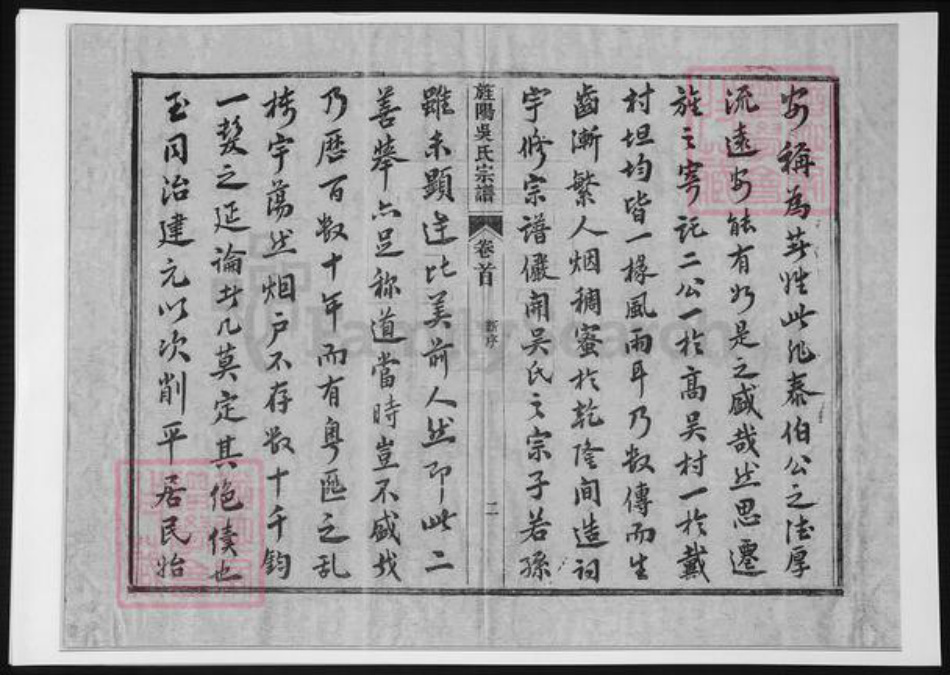 安稱為吳姓此非泰伯公之德厚
流遠安能有如是之盛哉然思遷
旌之寄託二公一於高吳村一於戴
村坦均皆一椽風雨耳乃数傳而生
齒漸繁人烟稠蜜於乾隆間造祠
宇修宗譜儼開吳氏之宗子若孫
旌陽吳氏宗譜 卷首 新序 二
雖未顯達比美前人然即此二
善舉亦足称道當時豈不盛哉
乃歷百数十年而有粵匪之乱
棟宇蕩然烟户不存数十千鈞
一髮之延論者几莫定其絕續也
至同治建元以次削平居民始
FamilySearch